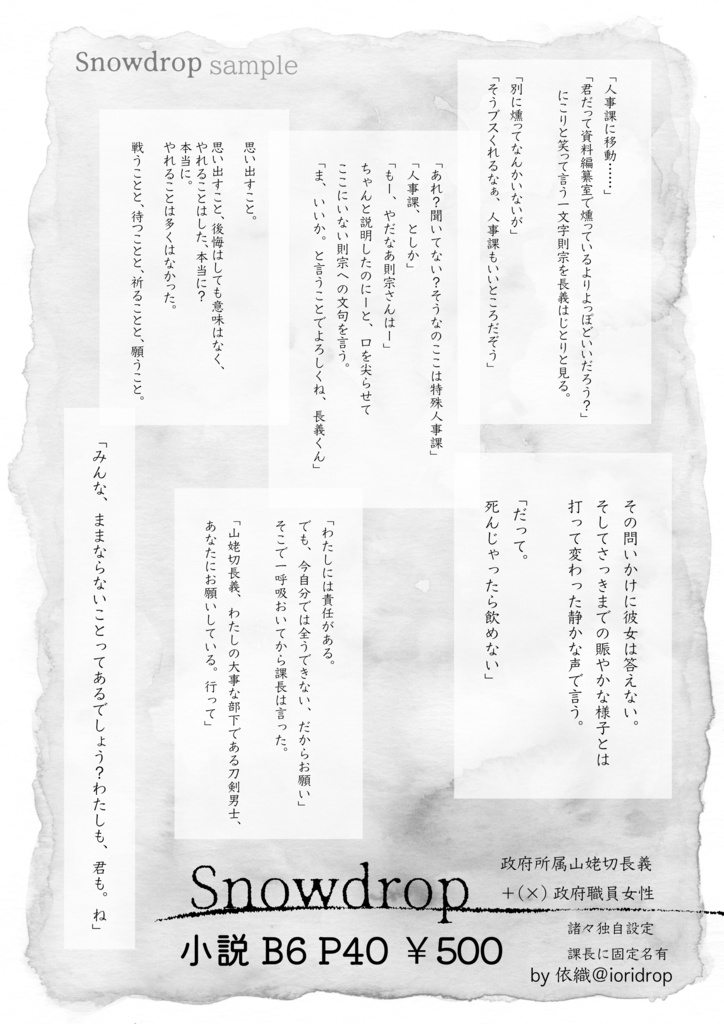 Snowdrop sample
「人事課に移動……」
「君だって資料編纂室で燻っているよりよっぽどいいだろう?」
にこりと笑って言う一文字則宗を長義はじとりと見る。
「別に燻ってなんかいないが」
「そうブスくれるなぁ、人事課もいいところだぞう」
「あれ?聞いてない?そうなのここは特殊人事課」
「人事課、としか」
「もー、やだなあ則宗さんはー」
ちゃんと説明したのにーと、口を尖らせて
ここにいない則宗への文句を言う。
「ま、いいか。と言うことでよろしくね、長義くん」
思い出すこと。
思い出すこと、後悔はしても意味はなく、
やれることはした、本当に?
本当に。
やれることは多くはなかった。
戦うことと、待つことと、祈ることと、願うこと。
その問いかけに彼女は答えない。
そしてさっきまでの賑やかな様子とは
打って変わった静かな声で言う。
「だって。
死んじゃったら飲めない」
「わたしには責任がある。
でも、今自分では全うできない、だからお願い」
そこで一呼吸おいてから課長は言った。
「山姥切長義、わたしの大事な部下である刀剣男士、
あなたにお願いしている。行って」
「みんな、ままならないことってあるでしょう?わたしも、君も。ね」
Snowdrop
小説 B6 P40 ¥500
政府所属山姥切長義
+(×)政府職員女性
諸々独自設定
課長に固定名有
by 依織@ioridrop